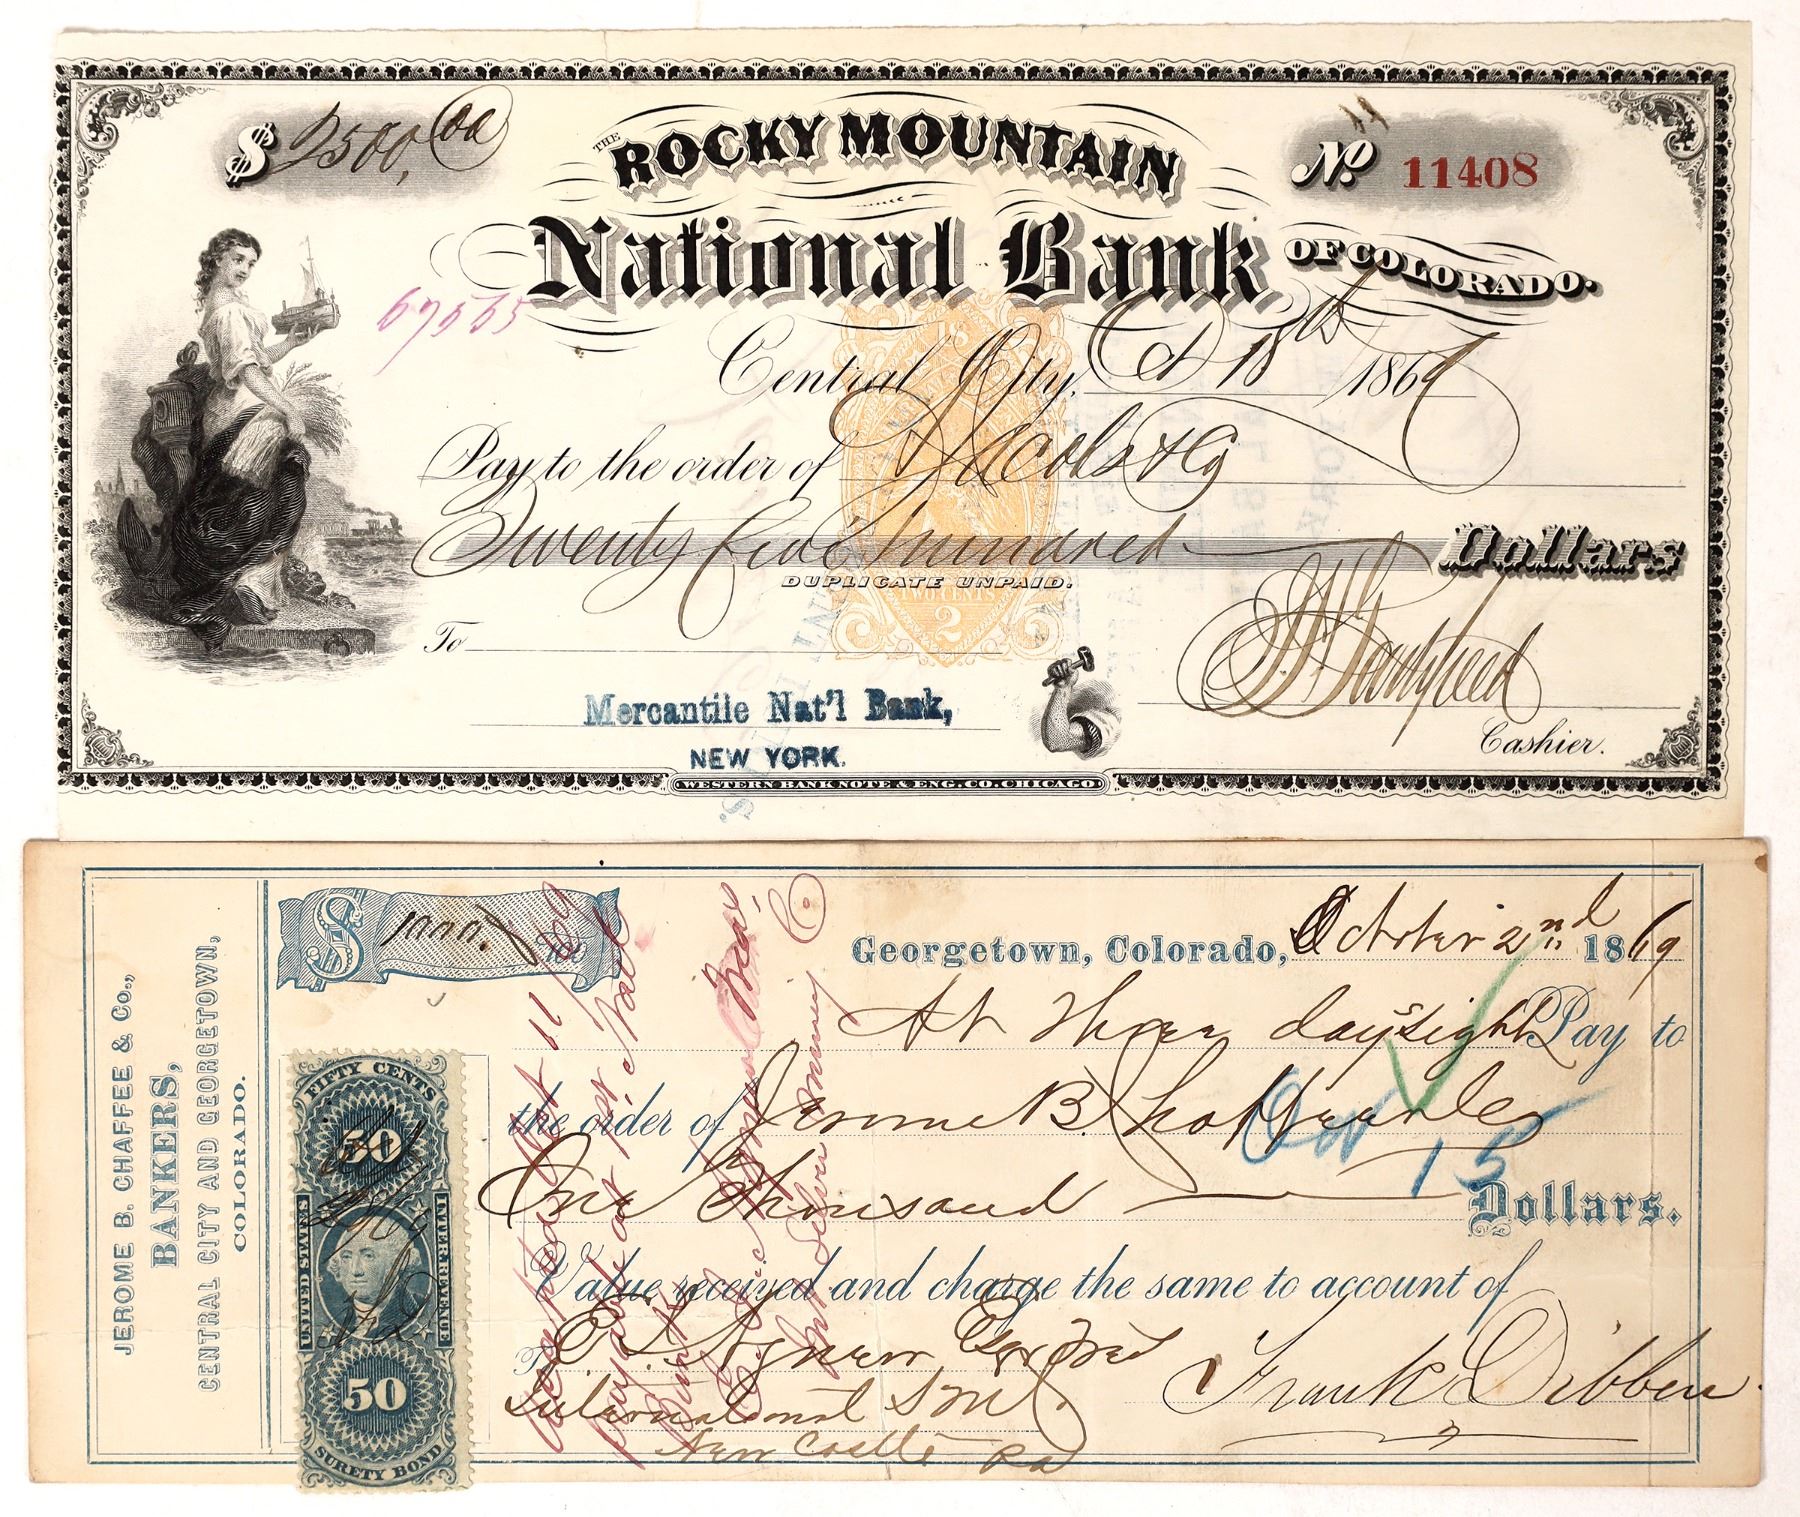 $ 2500,00
THE ROCKY MOUNTAIN
No. 11408
National Bank OF COLORADO.
67565
Central City, Oct 18th 1869
Pay to the order of Jacobs & Co
Twenty Five Hundred Dollars
DUPLICATE UNPAID.
TWO CENTS
2
To
Mercantile Nat'l Bank,
NEW YORK.
Cashier.
WESTERN BANK NOTE & ENG. CO. CHICAGO
JEROME B. CHAFFEE & Co.,
BANKERS,
CENTRAL CITY AND GEORGETOWN,
COLORADO.
$ 1000.
Georgetown, Colorado, October 2nd 1869
At Three days sight Pay to
the order of Jerome B. Chaffee
One Thousand Dollars.
Value received and charge the same to account of
To E. S. Agnew, Pres
International S M Co
New Castle Pa
Frank Dibben
FIFTY CENTS
50
UNITED STATES
INTER. REVENUE
50
SURETY BOND
Accepted Oct 11 / 69
Payable at 1st Natl
Bank
Nov 15